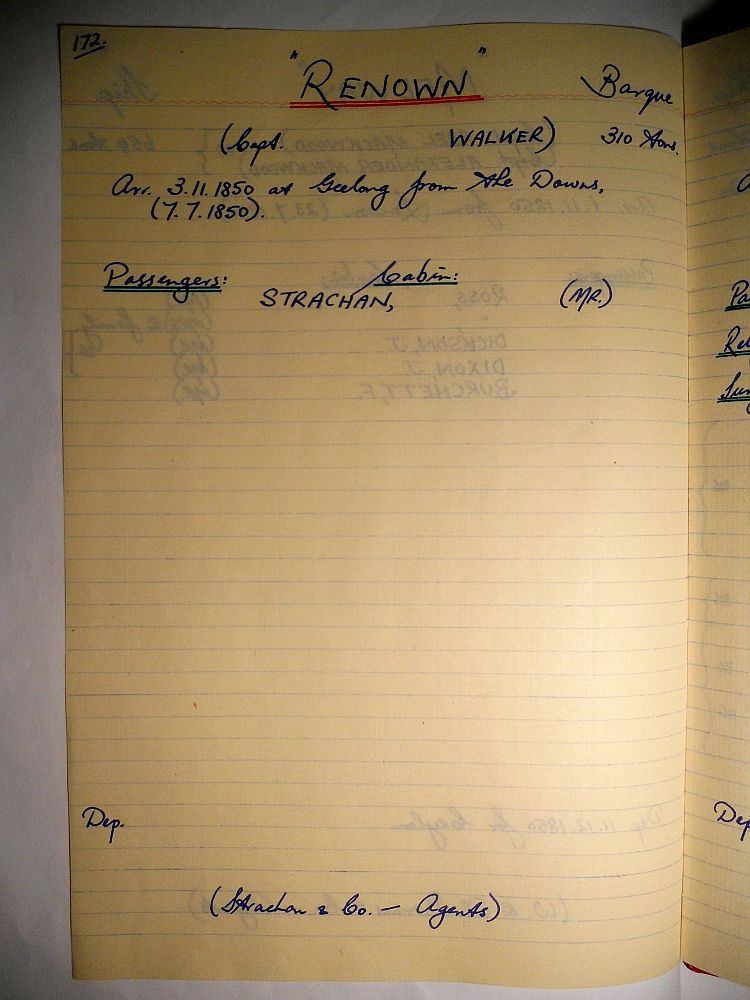 172.
"RENOWN" Barque
(Capt. WALKER) 310 tons.
Arr. 3.11.1850 at Geelong from the Downs,
(7.7.1850).
Passengers: Cabin:
STRACHAN, (MR.)
Dep.
(Strachan & Co. — Agents)